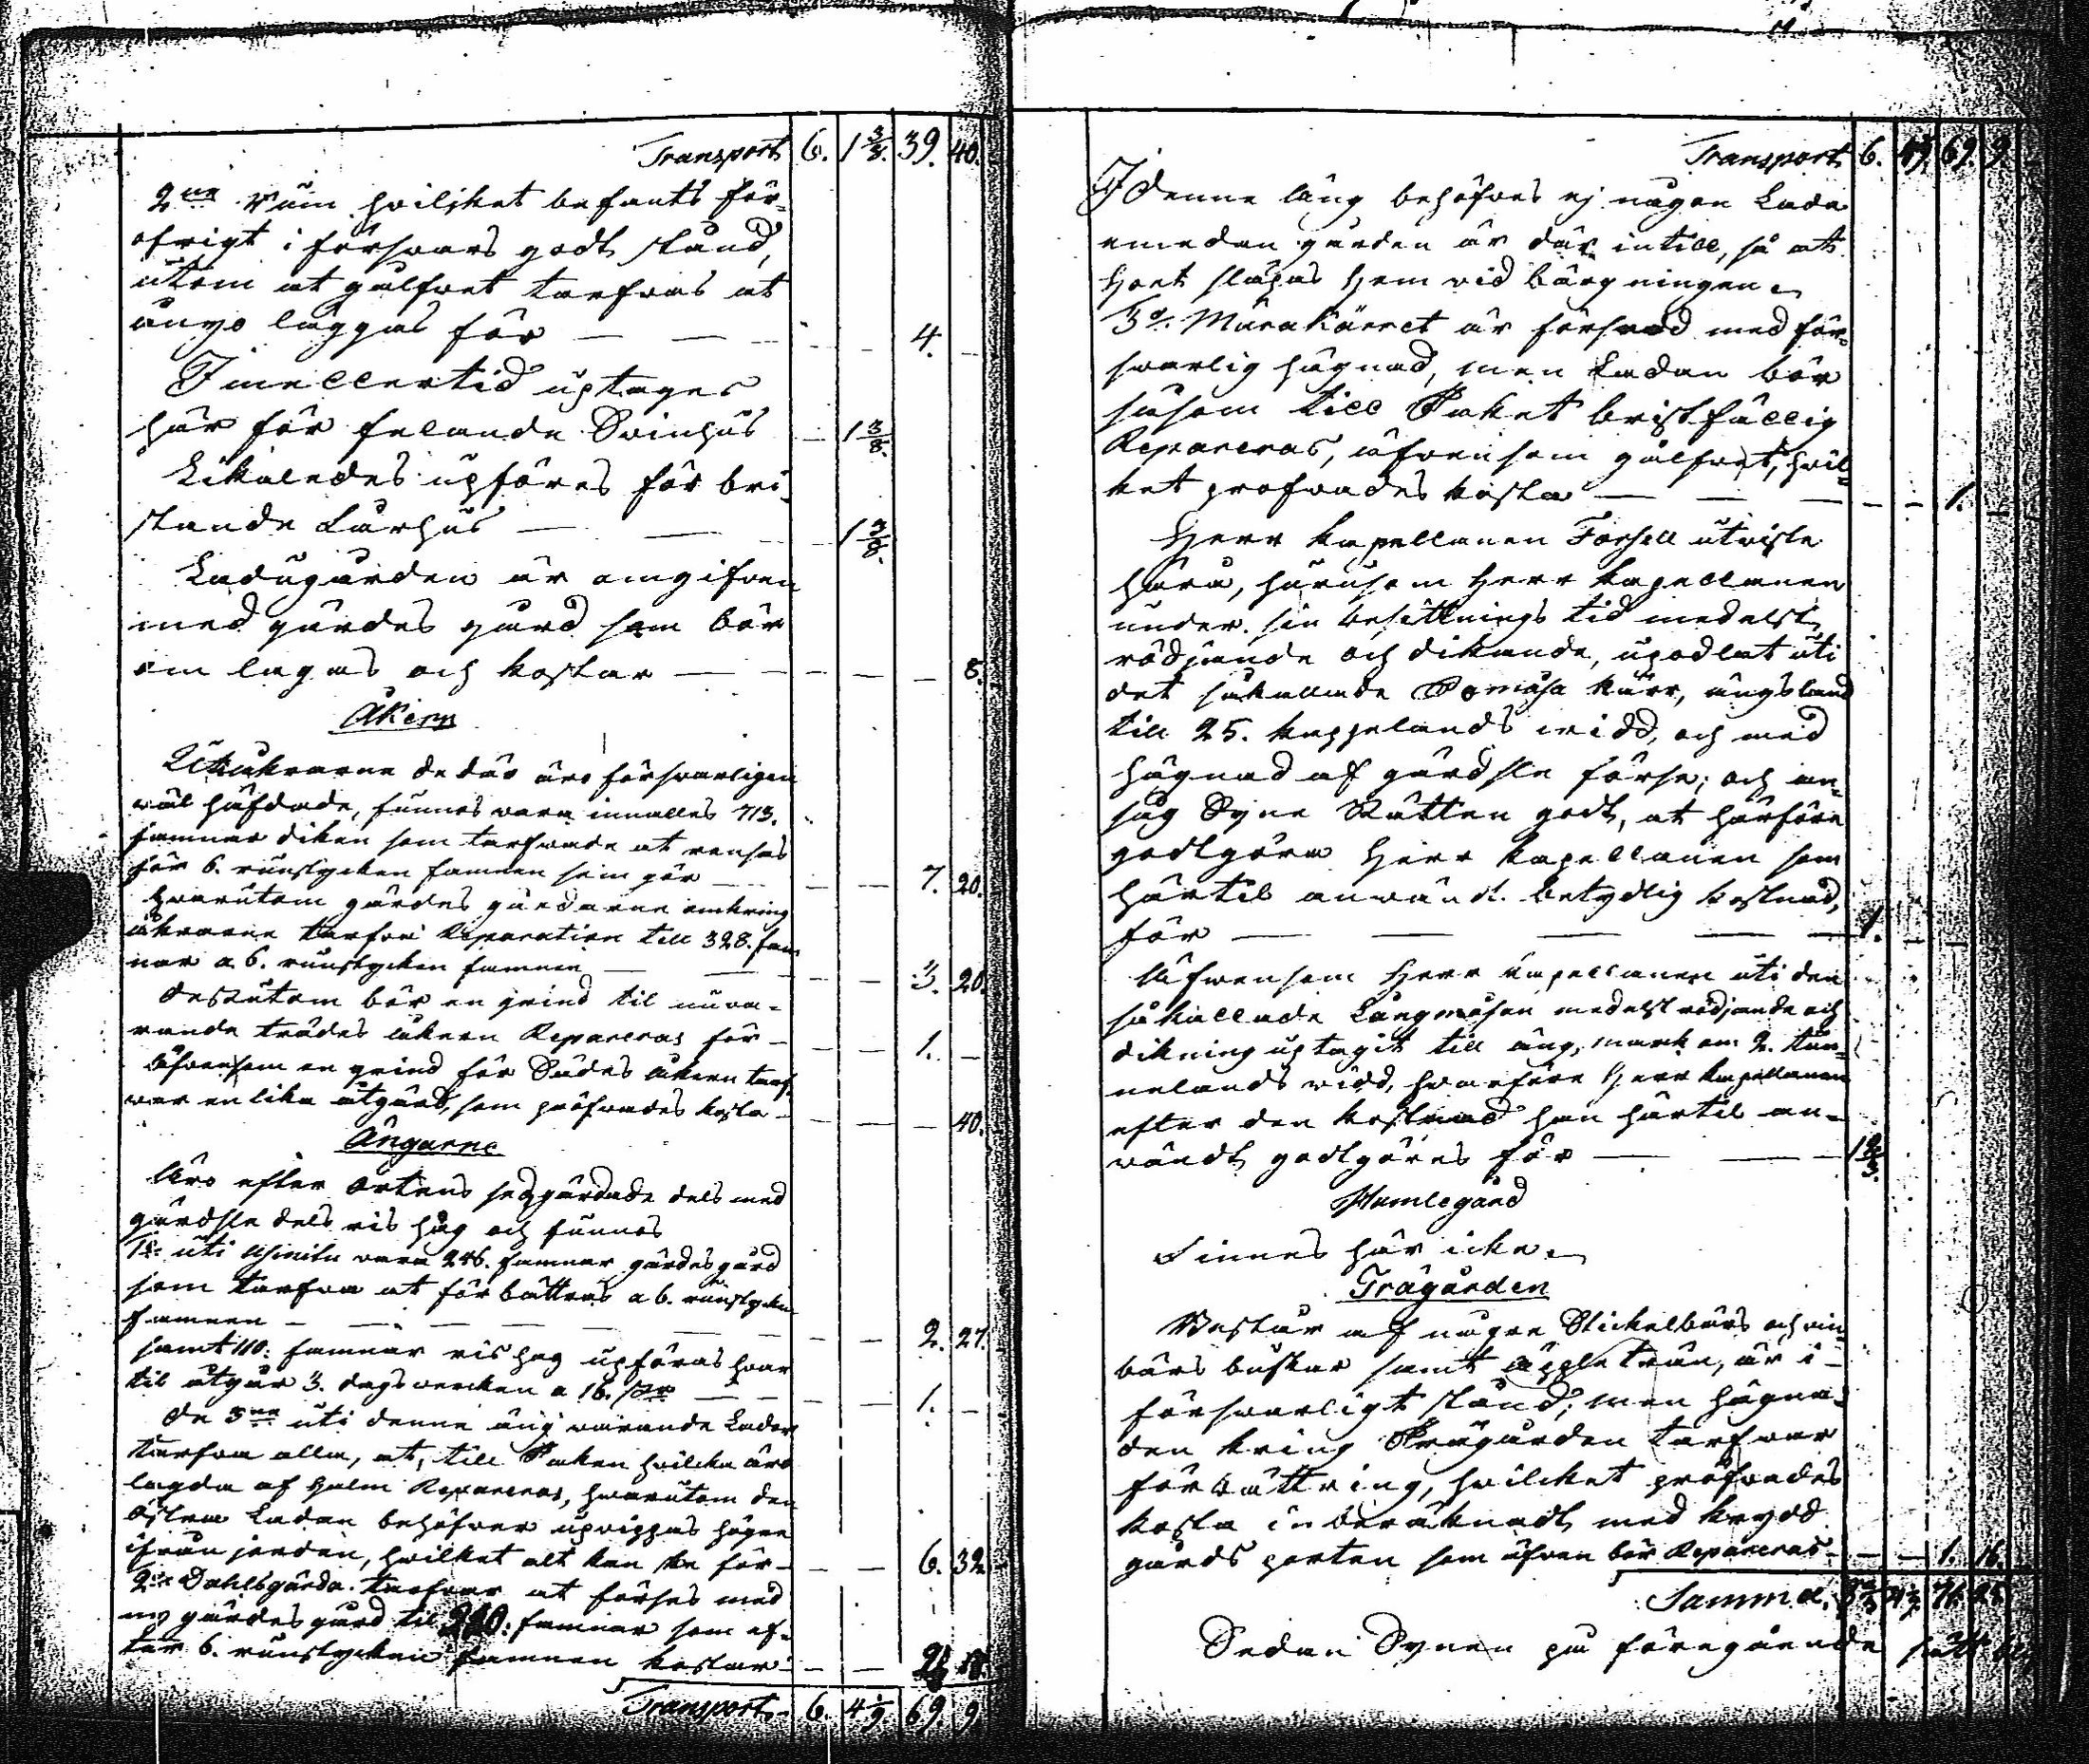 Transport 6. 1 3/8. 39. 40.
2ne Rum hvilket befants för-
öfrigt i försvars godt stånd,
utom at gålfvet tarfvas at
ånyo läggas för — — 4. —
Imellertid uptages
här för felande Svinhus — 1 3/8.
Likaledes upföres för bri-
stande Lårhus — — 1 3/8.
Ladugården är omgifven
med gärdes gård som bör
om lagas och kostar — — — — 8.
Åkern
Utåkrarne de där äro försvarligen
väl häfdade, funnos vara innalles 713.
famnar diken som tarfvade at rensas
för 6. runstycken famnen som gör — — — 7. 20.
hvarutom gärdes gårdarne omkring
åkrarne tarfva Reparation till 328. fam
nar a 6. runstycken famnen — — — 3. 20.
Dessutom bör en grind til nuva-
rande trädes åkern Repareras för — — — 1. —
Äfvensom en grind för Sädes Åkern tarf-
var en lika åtgärd, som pröfvades kosta — — — 40.
Ängarne
Äro efter Ortens sed gärdade dels med
gärdsle dels ris häg och funnos
1o uti vara 246. famnar gärdesgård
som tarfva at förbättras a 6. runstycken
famnen — — — — — — 2. 27.
samt 110. famnar ris hag upföras hvar
til åtgår 3. dagsverken a 16. — — — 1. —
De 3ne uti denne äng varande Lador
tarfva alla, at, till Taken hvilka äro
lagda af Halm Repareras, hvarutom den
östra Ladan behöfver upriggas högre
ifrån jorden, hvilket alt kan ske för — — — 6. 32.
2o Dahlsgärda tarfvar at förses med
ny gärdesgård til 220: famnar som ef-
ter 6. runstycken famnen kostar — — —
Transport 6. 4 1/9 69. 9.
Transport 6. 69. 9.
I denne äng behöfves ej någon Lada
emedan gården är där intill, så at
Höet släpas Hem vid bärgningen.
3o. Murakärret är försedd med för-
svarlig hägnad, men Ladan bör
såsom till Taket bristfällig
Repareras, äfvensom gålfvet, hvil-
ket pröfvades kosta — — — — — 1. —
Herr Kapellanen Forsell utviste
härå, hurusom Herr Kapellanen
under sin besittnings tid medelst
rödjande och dikande, upodlat uti
det såkallade kärr, ängsland
till 25. kappelands vidd, och med
hägnad af gärdsle förse; och an-
såg Syne Rätten godt, at härföre
godtgöra Herr Kapellanen som
härtil använd. betydlig kostnad,
för — — — — — 1. — —
Äfvensom Herr Kapellanen uti den
såkallade Långmåsan medelst rödjande och
dikning uptagit till äng, mark om 2. tun-
nelands vidd, hvarföre Herr Kapellanen
efter den kostnad han härtil an-
vändt godtgöres för — — — 1 2/3.
Humlegård
Finnes här icke.
Trägården
Består af några Stickelbärs och vin-
bärs buskar samt äppleträn, är i
försvarligt stånd; men hägna-
den kring Trägården tarfvar
förbättring, hvilcket pröfvades
kosta inberäknadt med krydd
gårds porten som äfven bör Repareras — — 1. 16.
Summa.
Sedan Synen på föregående sätt